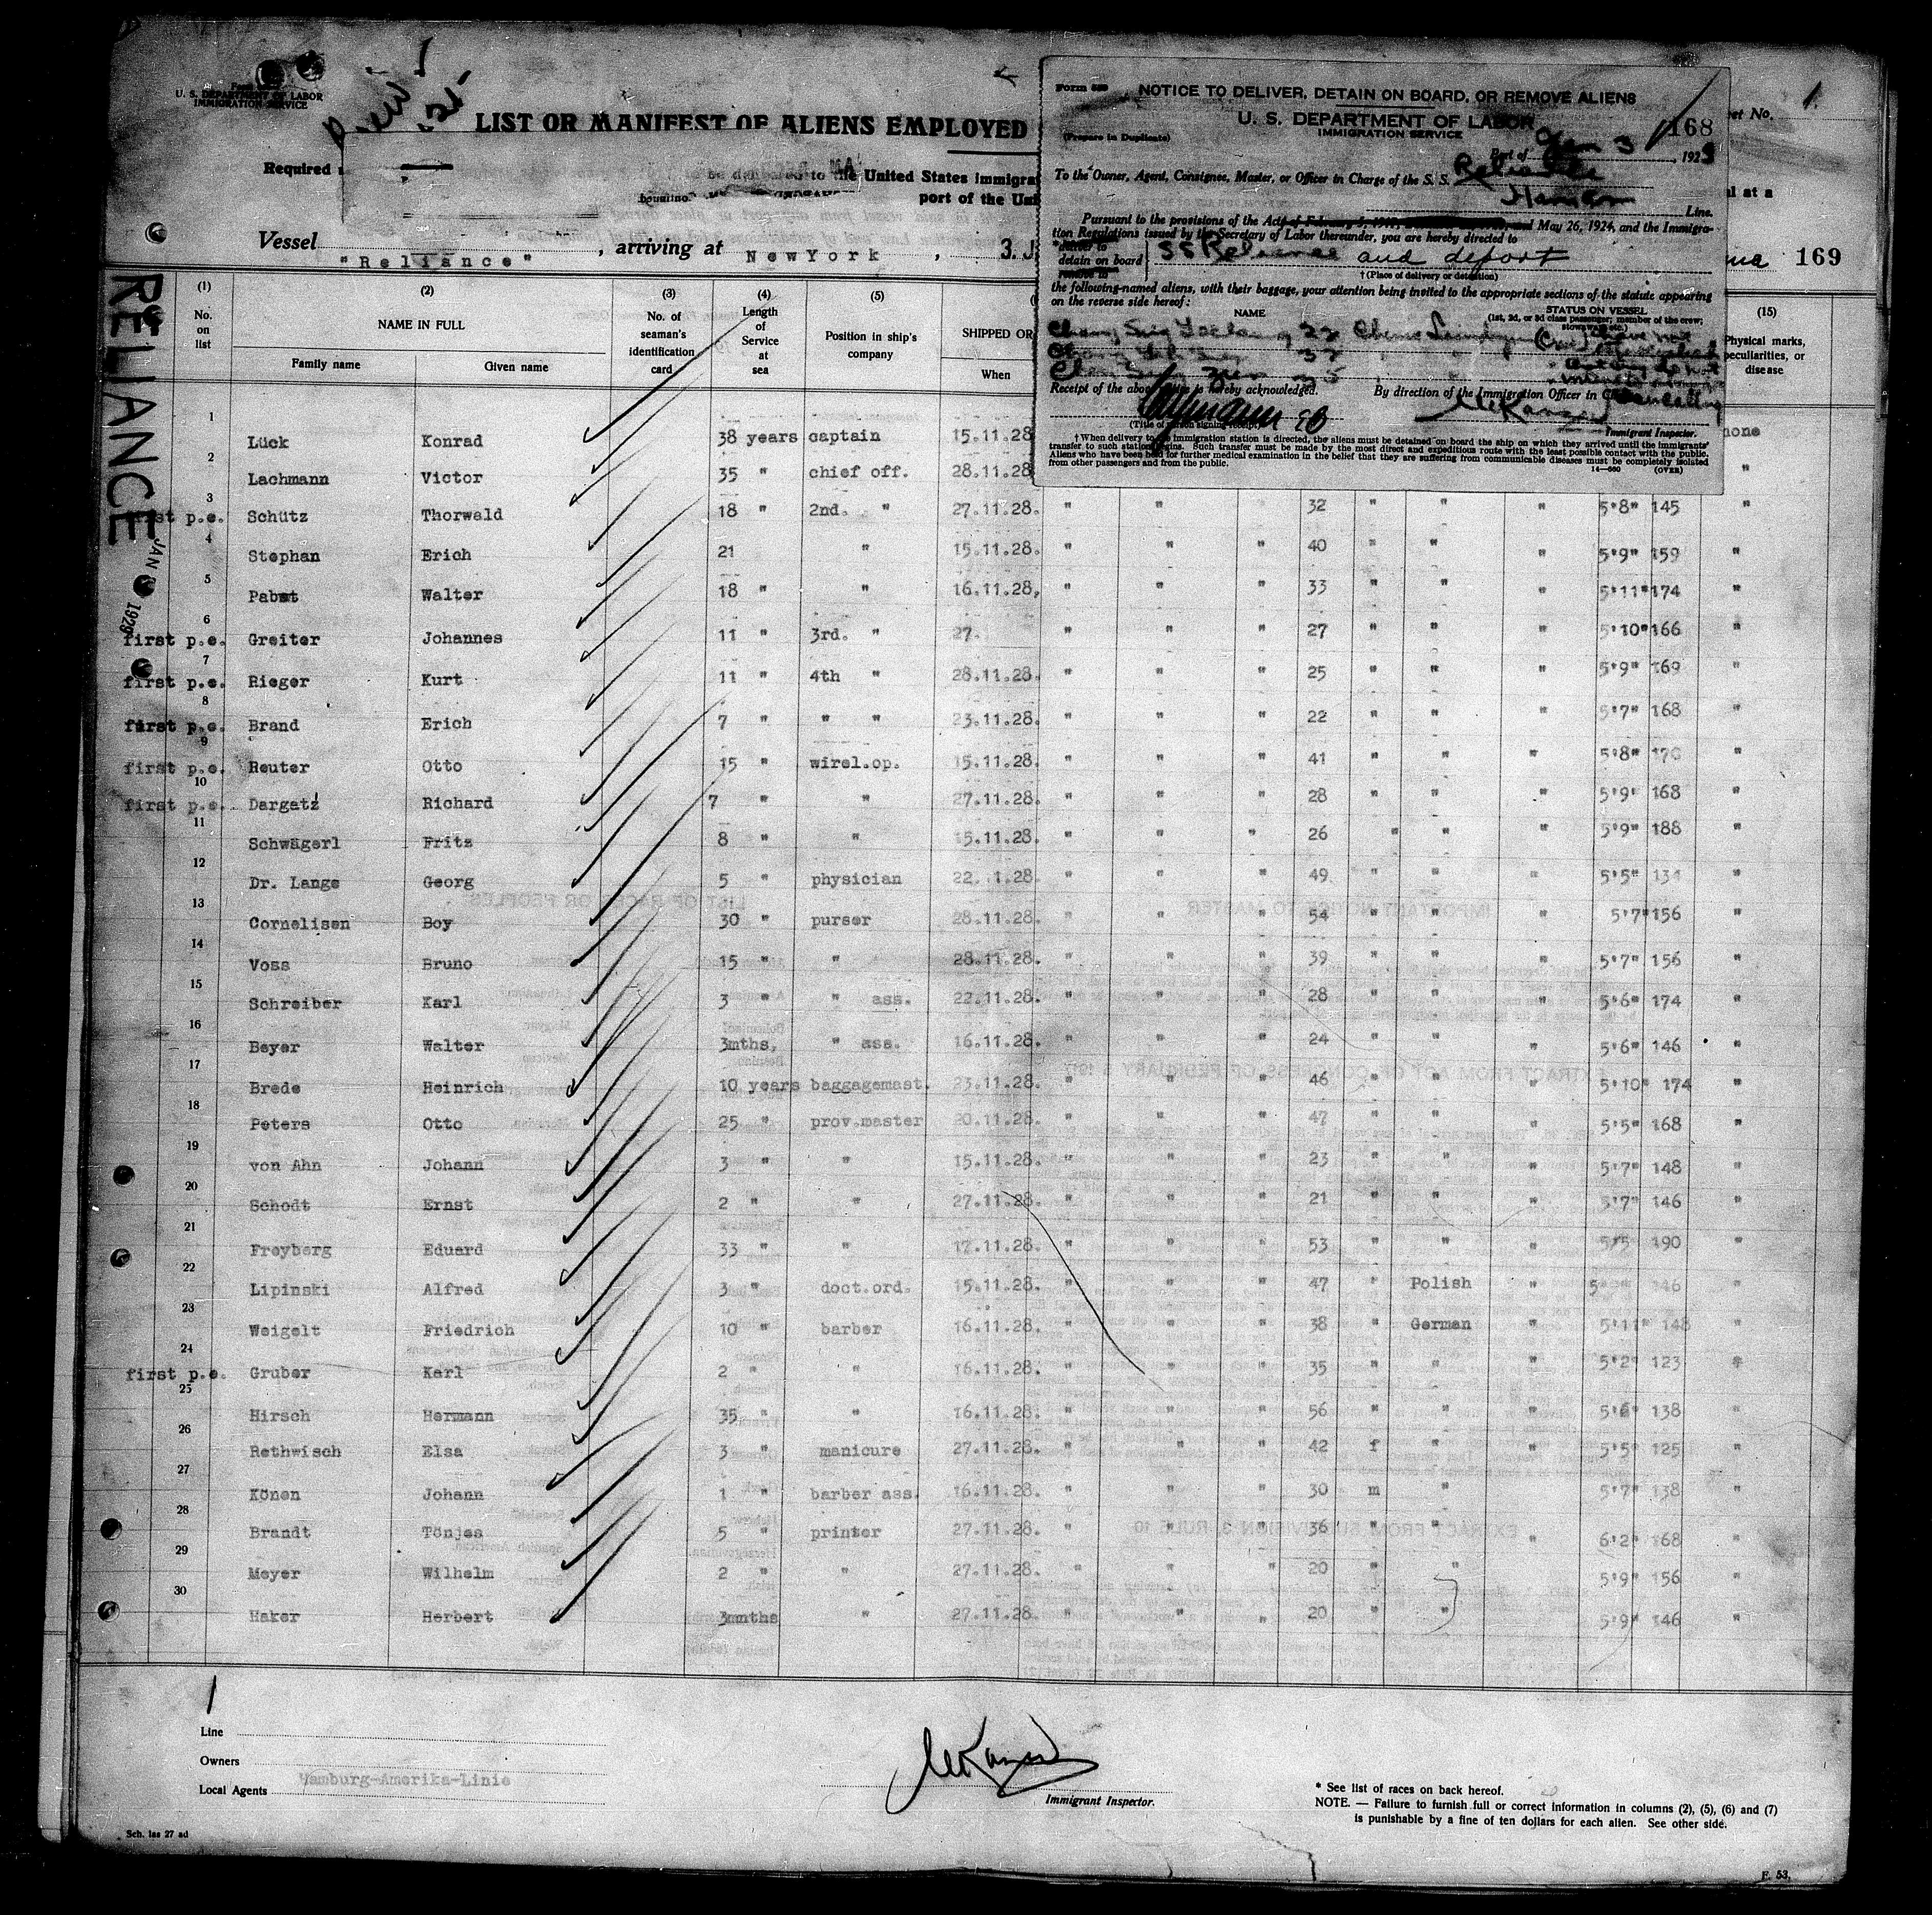 U. S. DEPARTMENT OF LABOR
IMMIGRATION SERVICE
LIST OR MANIFEST OF ALIENS EMPLOYED
Sheet No. 1.
Required
to the United States Immigra
port of the Uni
al at a
Vessel "Reliance", arriving at NewYork, 3. J
169
RELIANCE
JAN 1929
Form
NOTICE TO DELIVER, DETAIN ON BOARD, OR REMOVE ALIENS
U. S. DEPARTMENT OF LABOR
IMMIGRATION SERVICE
168
(Prepare in Duplicate)
Port of Jan 3, 1929
To the Owner, Agent, Consignee, Master, or Officer in Charge of the S. S. Reliance
Line.
Pursuant to the provisions of the Act of and May 26, 1924, and the Immigra-
tion Regulations issued by the Secretary of Labor thereunder, you are hereby directed to
detain on board SS Reliance and deport
† (Place of delivery or detention)
the following-named aliens, with their baggage, your attention being invited to the appropriate sections of the statute appearing
on the reverse side hereof:
NAME STATUS ON VESSEL
(1st, 2d, or 3d class passenger, member of the crew, stowaway, etc.)
Receipt of the above notice is hereby acknowledged. By direction of the Immigration Officer in
(Title of person signing receipt) Immigrant Inspector.
† When delivery to the immigration station is directed, the aliens must be detained on board the ship on which they arrived until the immigrants'
transfer to such station begins. Such transfer must be made by the most direct and expeditious route with the least possible contact with the public.
Aliens who have been held for further medical examination in the belief that they are suffering from communicable diseases must be completely isolated
from other passengers and from the public. 14—660 (OVER)
(1) (2) (3) (4) (5) (15)
No. on list NAME IN FULL No. of seaman's identification card Length of Service at sea Position in ship's company SHIPPED OR Physical marks, peculiarities, or disease
Family name Given name When
1 Lück Konrad 38 years captain 15.11.28 none
2 Lachmann Victor 35 " chief off. 28.11.28 "
3 first p.e. Schütz Thorwald 18 " 2nd. " 27.11.28. " " " 32 " " " 5'8" 145 "
4 Stephan Erich 21 " 15.11.28. " " " 40 " " " 5'9" 159 "
5 Pabst Walter 18 " " 16.11.28, " " " 33 " " " 5'11" 174 "
6 first p.e. Greiter Johannes 11 " 3rd. " 27. " " " 27 " " " 5'10" 166 "
7 first p.e. Rieger Kurt 11 " 4th " 28.11.28. " " " 25 " " " 5'9" 169 "
8 first p.e. Brand Erich 7 " " " 23.11.28. " " " 22 " " " 5'7" 168 "
9 first p.e. Reuter Otto 15 " wirel.op. 15.11.28. " " " 41 " " " 5'8" 170 "
10 first p.e. Dargatz Richard 7 " " 27.11.28. " " " 28 " " " 5'9" 168 "
11 Schwägerl Fritz 8 " " 15.11.28. " " " 26 " " " 5'9" 188 "
12 Dr. Lange Georg 5 " physician 22. 1.28. " " " 49 " " " 5'5" 134 "
13 Cornelisen Boy 30 " purser 28.11.28. " " " 54 " " " 5'7" 156 "
14 Voss Bruno 15 " " 28.11.28. " " " 39 " " " 5'7" 156 "
15 Schreiber Karl 3 " " ass. 22.11.28. " " " 28 " " " 5'6" 174 "
16 Beyer Walter 3mths, " ass. 16.11.28. " " " 24 " " " 5'6" 146 "
17 Brede Heinrich 10 years baggagemast. 23.11.28. " " " 46 " " " 5'10" 174 "
18 Peters Otto 25 " prov.master 20.11.28. " " " 47 " " " 5'5" 168 "
19 von Ahn Johann 3 " " 15.11.28. " " " 23 " " " 5'7" 148 "
20 Schodt Ernst 2 " " 27.11.28. " " " 21 " " " 5'7" 146 "
21 Freyberg Eduard 33 " " 17.11.28. " " " 53 " " " 5'5" 190 "
22 Lipinski Alfred 3 " doct.ord. 15.11.28. " " " 47 " Polish " 5' 146 "
23 Weigelt Friedrich 10 " barber 16.11.28. " " " 38 " German " 5'11" 148 "
24 first p.e. Gruber Karl 2 " " 16.11.28. " " " 35 " " " 5'2" 123 "
25 Hirsch Hermann 35 " " 16.11.28. " " " 56 " " " 5'6" 138 "
26 Rethwisch Elsa 3 " manicure 27.11.28. " " " 42 f " " 5'5" 125 "
27 Könen Johann 1 " barber ass. 16.11.28. " " " 30 m " " 5'7" 138 "
28 Brandt Tönjes 5 " printer 27.11.28. " " " 36 " " " 6'2" 168 "
29 Meyer Wilhelm 2 " " 27.11.28. " " " 20 " " " 5'9" 156 "
30 Haker Herbert 3mnths " 27.11.28. " " " 20 " " " 5'9" 146 "
1
Line
Owners
Local Agents Hamburg-Amerika-Linie
Immigrant Inspector.
* See list of races on back hereof.
NOTE. — Failure to furnish full or correct information in columns (2), (5), (6) and (7)
is punishable by a fine of ten dollars for each alien. See other side.
Sch. las 27 ad
F. 53.